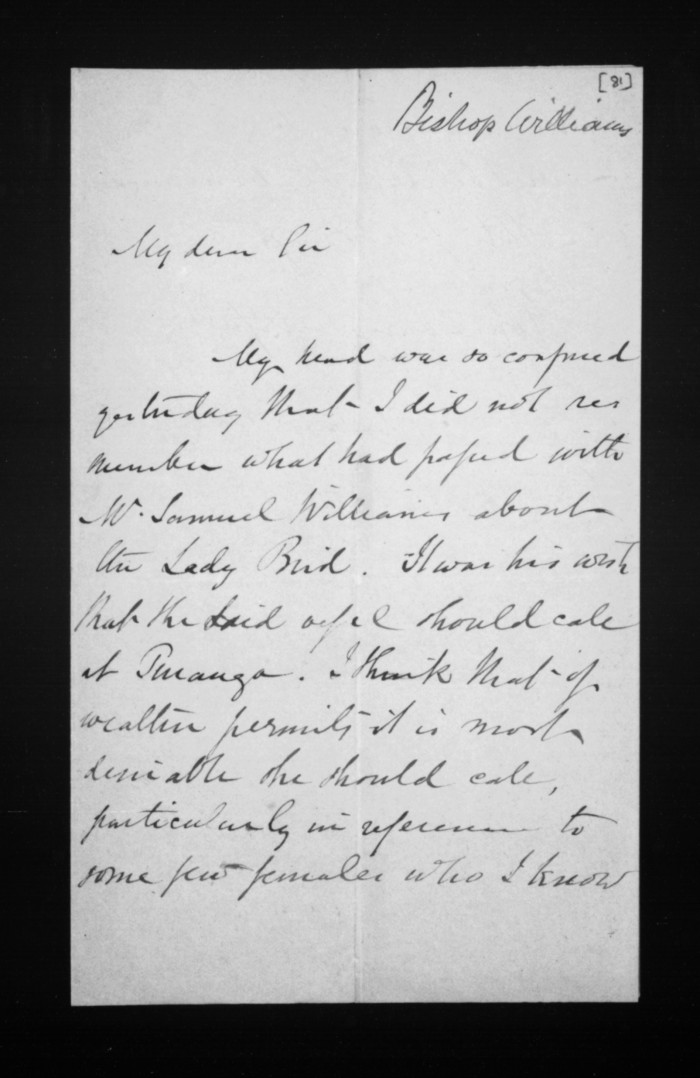 [81]
Bishop Williams
My dear Sir
My head was so confused
yesterday that I did not re
member what had passed with
Mr. Samuel Williams about
the Lady Bird. It was his wish
that the said vessel should call
at Turanga. I think that if
weather permits it is most
desirable she should call,
particularly in reference to
some few females who I know